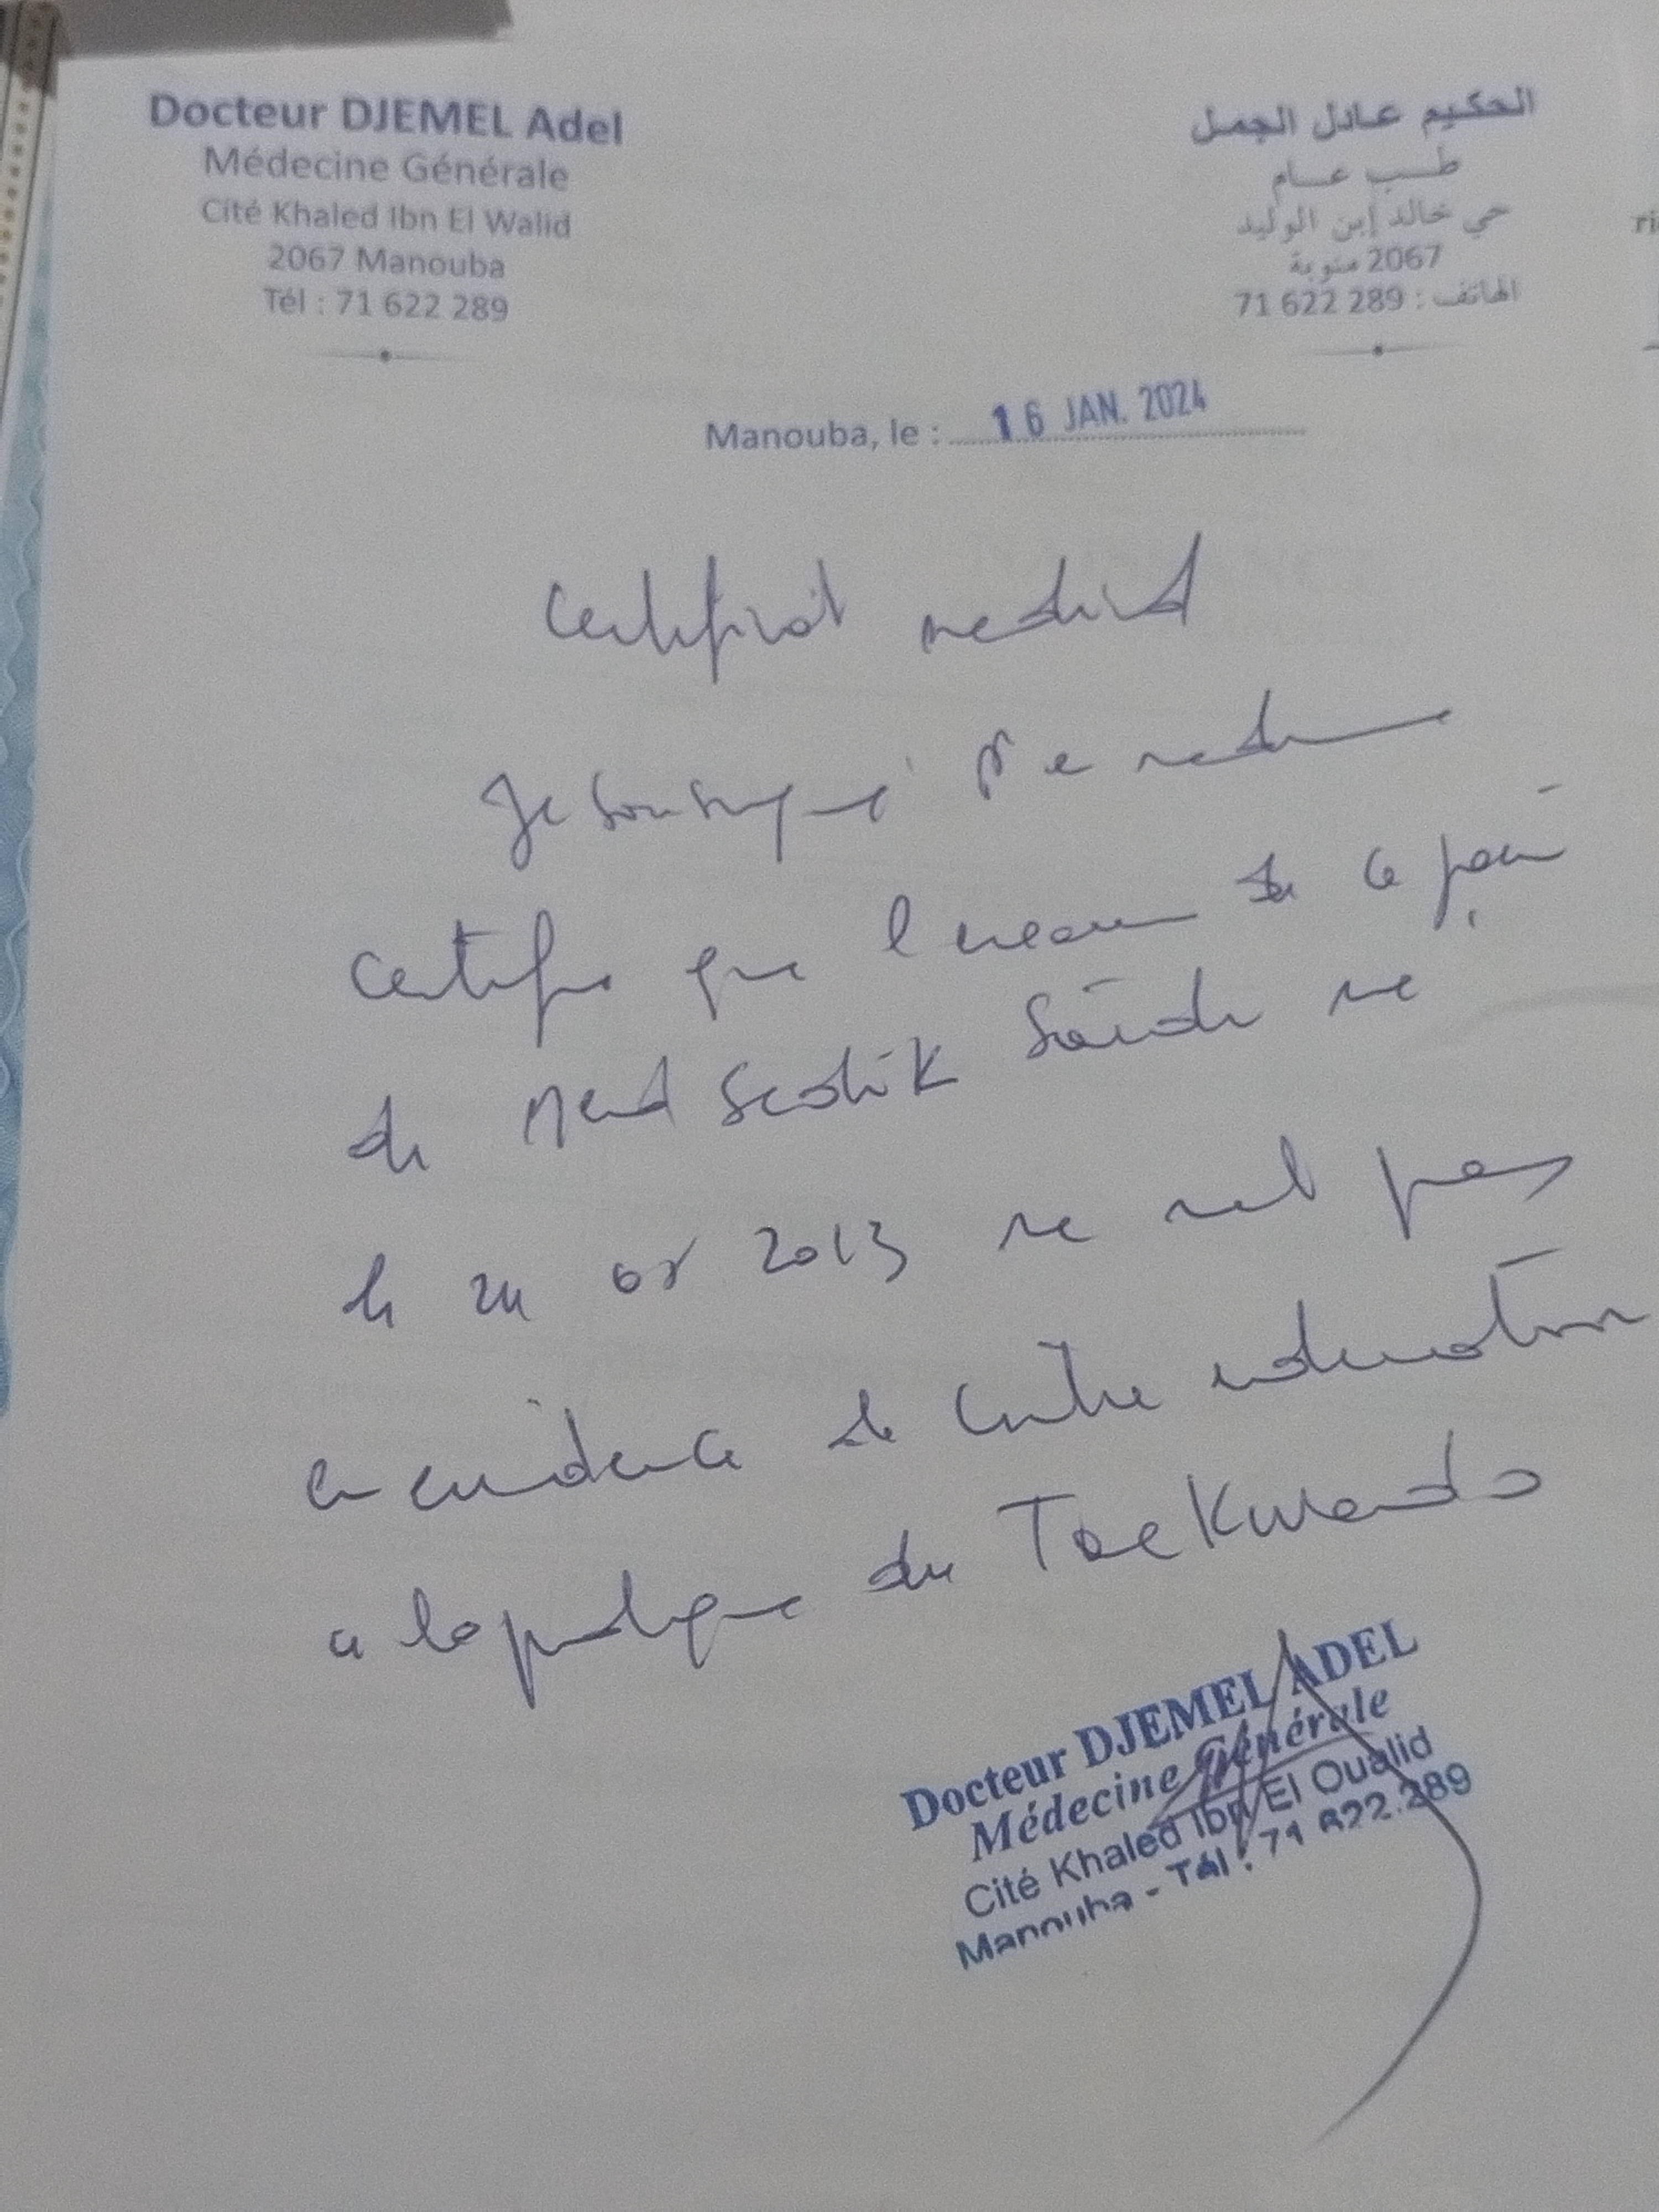 Docteur DJEMEL Adel
Médecine Générale
Cité Khaled Ibn El Walid
2067 Manouba
Tél : 71 622 289
الحكيم عادل الجمل
طب عام
حي خالد إبن الوليد
2067 منوبة
الهاتف : 71 622 289
Manouba, le : 16 JAN. 2024
Certificat medical
Je soussigné
certifie que l'examen de ce jour
de Med Sedik Saidi né
le 24 2013 ne met pas
en evidence de contre indication
a la pratique du TaeKwendo
Docteur DJEMEL ADEL
Médecine Générale
Cité Khaled Ibn El Oualid
Manouba - Tél : 71 622.289